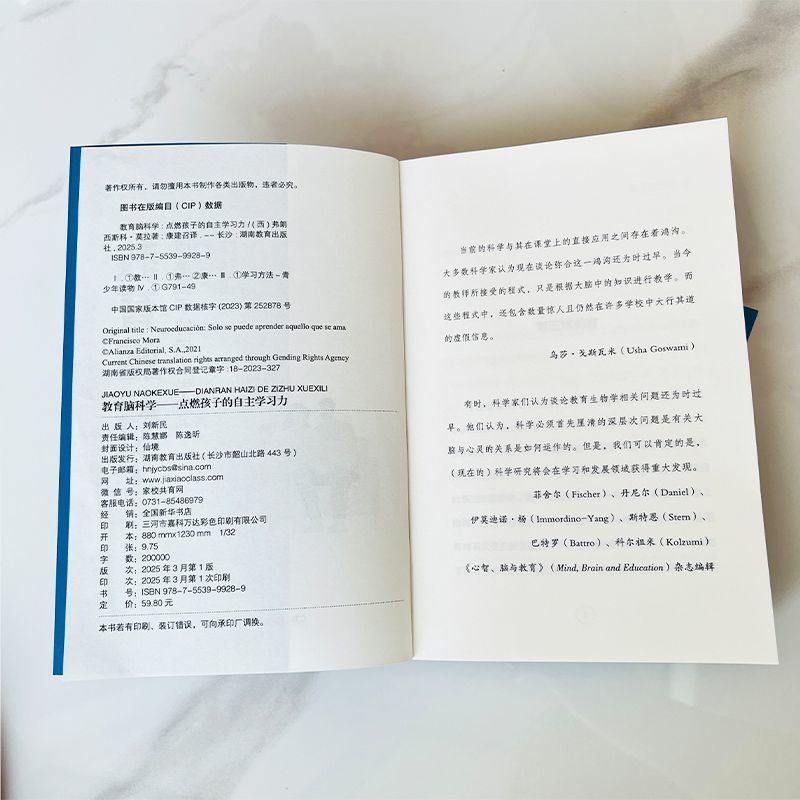 著作权所有，请勿擅用本书制作各类出版物，违者必究。
图书在版编目（CIP）数据
教育脑科学：点燃孩子的自主学习力 /（西）弗朗
西斯科·莫拉著；康建召译. -- 长沙：湖南教育出版
社，2025.3
ISBN 978-7-5539-9928-9
Ⅰ．①教… Ⅱ．①弗… ②康… Ⅲ．①学习方法－青
少年读物 Ⅳ．① G791-49
中国国家版本馆 CIP 数据核字（2023）第 252878 号
Original title : Neuroeducación: Solo se puede aprender aquello que se ama
©Francisco Mora
©Alianza Editorial, S.A.,2021
Current Chinese translation rights arranged through Gending Rights Agency
湖南省版权局著作权合同登记章字：18-2023-327
JIAOYU NAOKEXUE——DIANRAN HAIZI DE ZIZHU XUEXILI
教育脑科学——点燃孩子的自主学习力
出 版 人：刘新民
责任编辑：陈慧娜 陈逸昕
封面设计：仙境
出版发行：湖南教育出版社（长沙市韶山北路 443 号）
电子邮箱：hnjycbs@sina.com
网 址：www.jiaxiaoclass.com
微 信 号：家校共育网
客服电话：0731-85486979
经 销：全国新华书店
印 刷：三河市嘉科万达彩色印刷有限公司
开 本：880 mm×1230 mm 1/32
印 张：9.75
字 数：200000
版 次：2025 年 3 月第 1 版
印 次：2025 年 3 月第 1 次印刷
书 号：ISBN 978-7-5539-9928-9
定 价：59.80 元
本书若有印刷、装订错误，可向承印厂调换。
当前的科学与其在课堂上的直接应用之间存在着鸿沟。
大多数科学家认为现在谈论弥合这一鸿沟还为时过早。当今
的教师所接受的程式，只是根据大脑中的知识进行教学。而
这些程式中，还包含数量惊人且仍然在许多学校中大行其道
的虚假信息。
乌莎·戈斯瓦米（Usha Goswami）
有时，科学家们认为谈论教育生物学相关问题还为时过
早。他们认为，科学必须首先厘清的深层次问题是有关大
脑与心灵的关系是如何运作的。但是，我们可以肯定的是，
（现在的）科学研究将会在学习和发展领域获得重大发现。
菲舍尔（Fischer）、丹尼尔（Daniel）、
伊莫迪诺·杨（Immordino-Yang）、斯特恩（Stern）、
巴特罗（Battro）、科尔祖米（Kolzumi）
《心智、脑与教育》（Mind, Brain and Education）杂志编辑